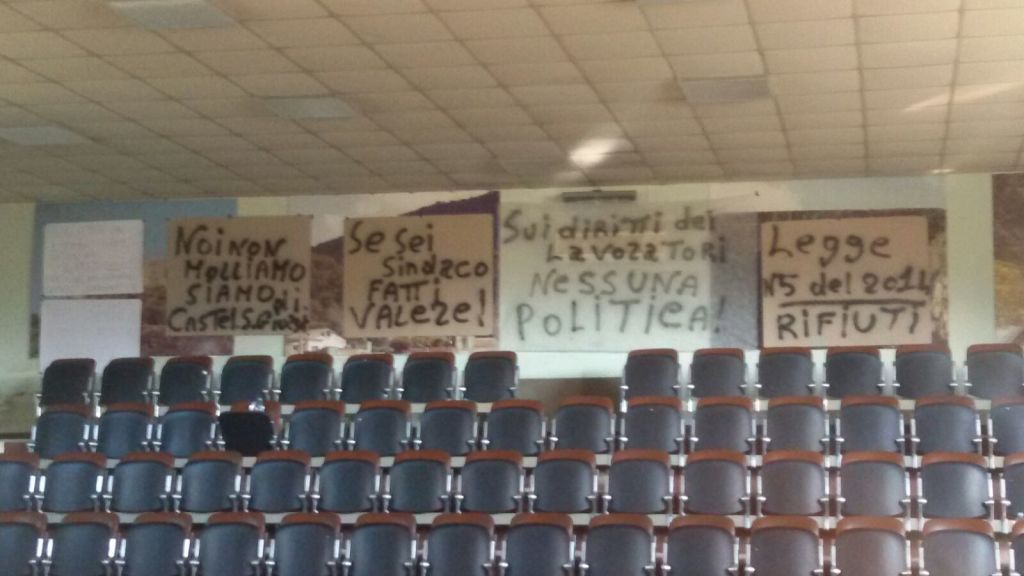 Noi non
Molliamo
siamo di
Castel
Se sei
Sindaco
FATTi
VALeRe!
Sui diRiTTi dei
LavoRaTORi
NeSSUNA
POLiTiCA!
Legge
N5 del 2014
RiFiUTi